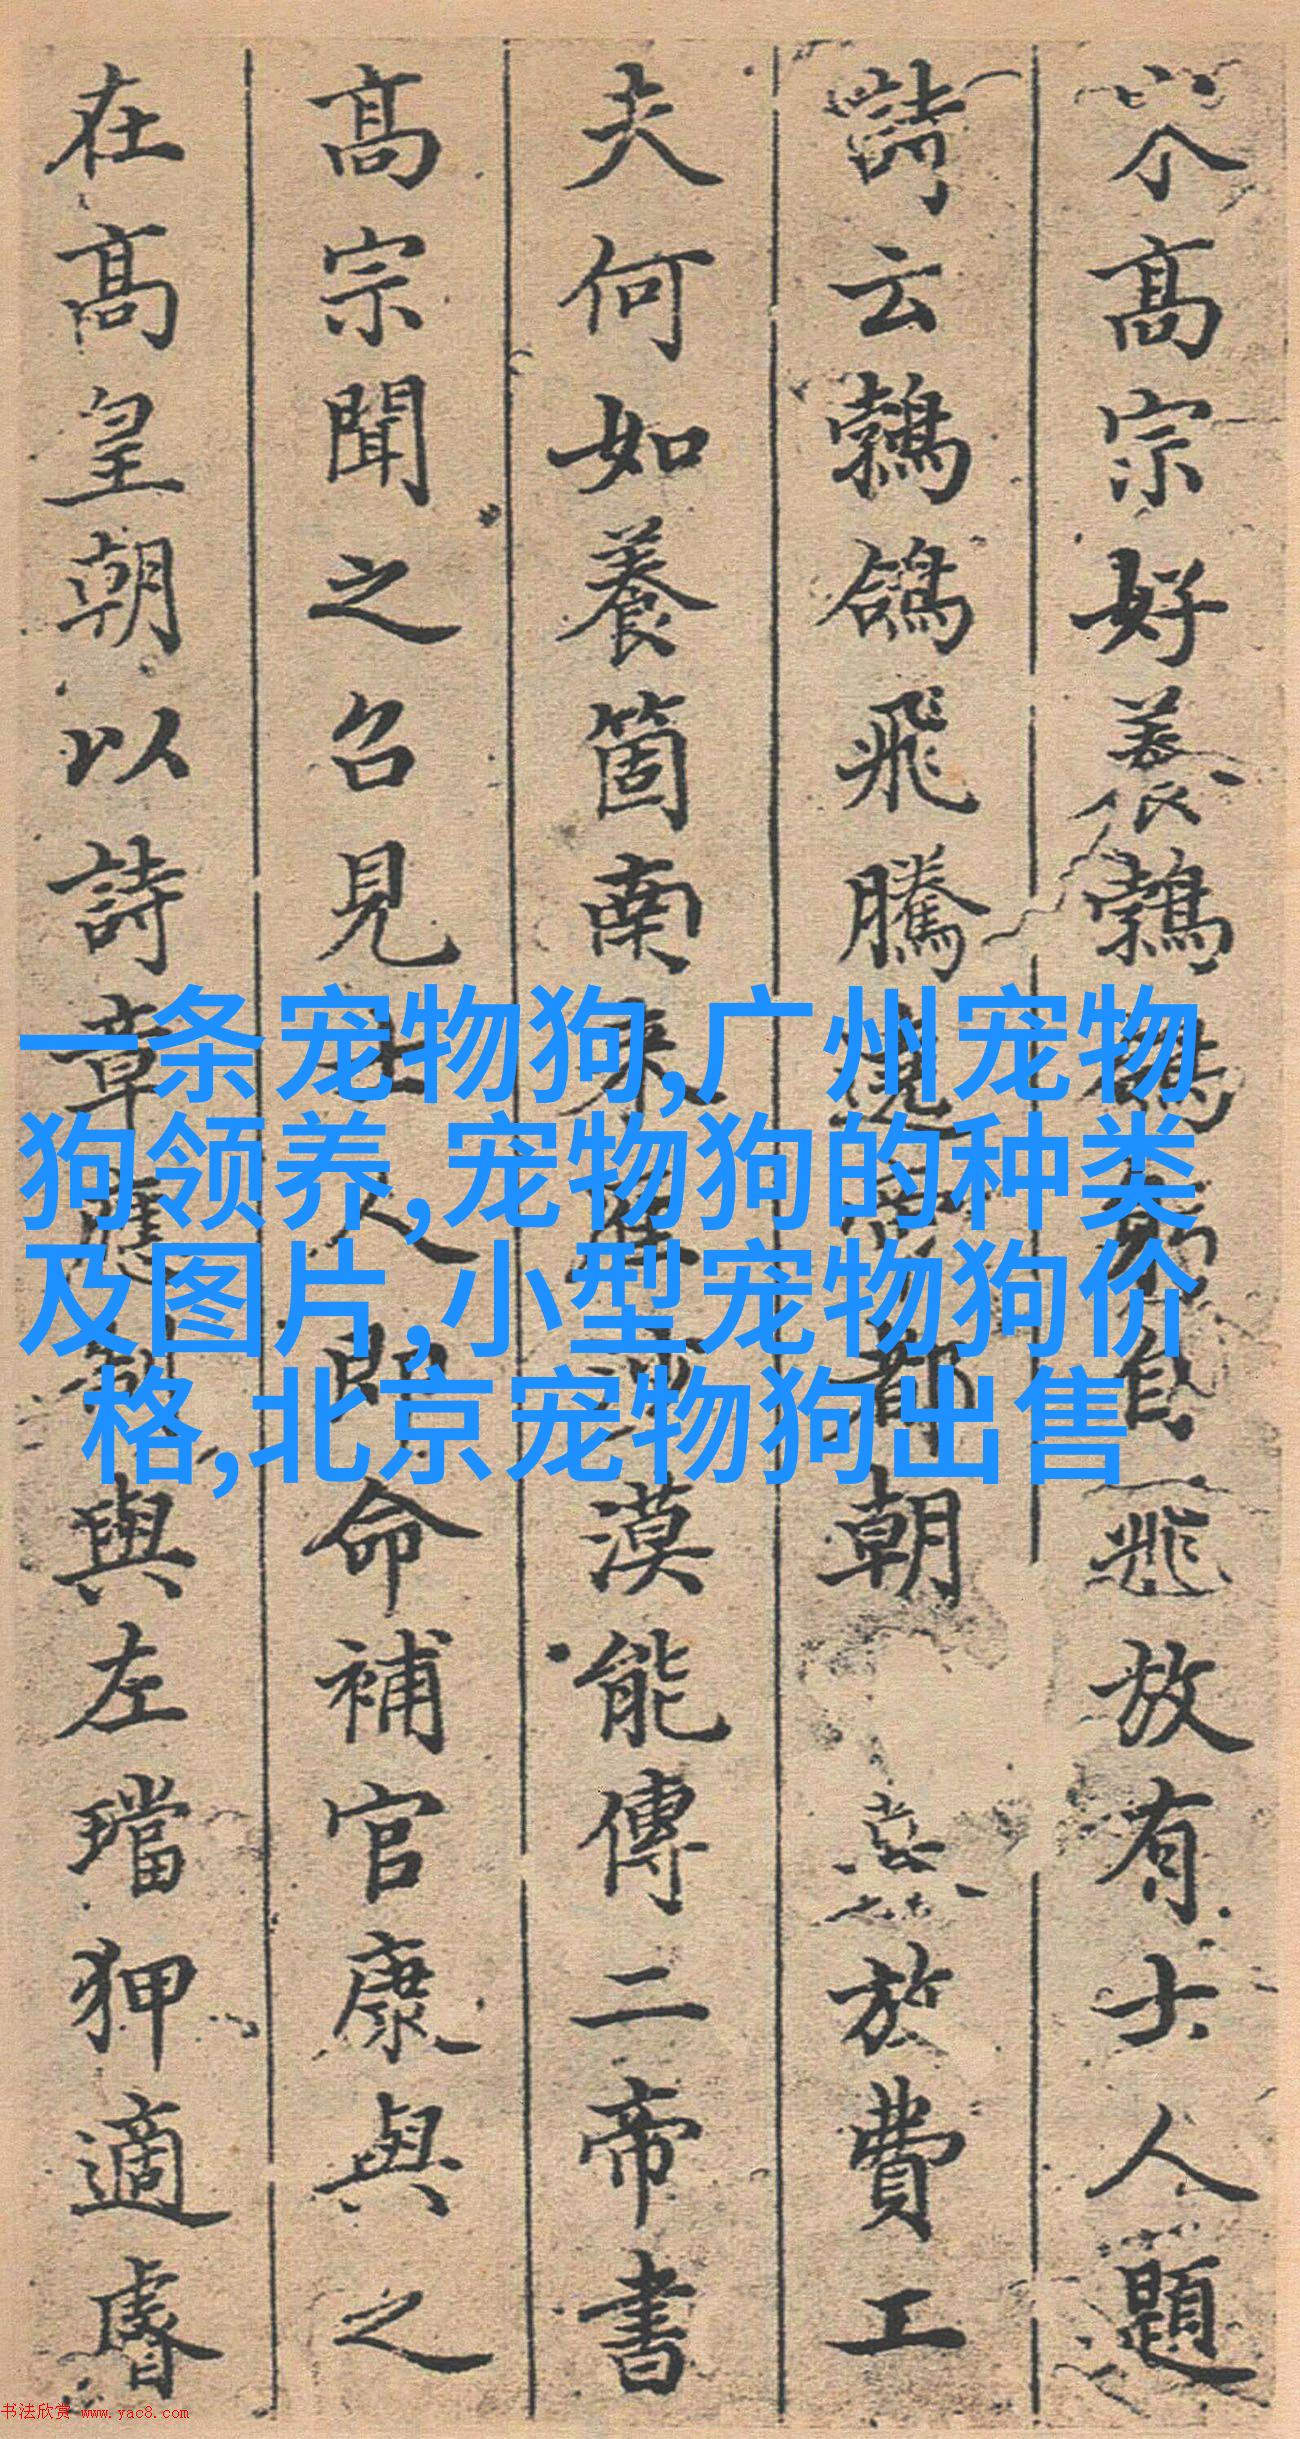 高宗好養鵓鴿躬自飛放有士人題
詩云鵓鴿飛騰遶帝都朝於費工
夫何如養箇南來雁沙漠能傳二帝書
高宗聞之召見士人即命補官康與之
在高皇朝以詩章應制與左璫狎適睿
一条宠物狗,广州宠物
狗领养,宠物狗的种类
及图片,小型宠物狗价
格,北京宠物狗出售
书法欣赏 www.yac8.com